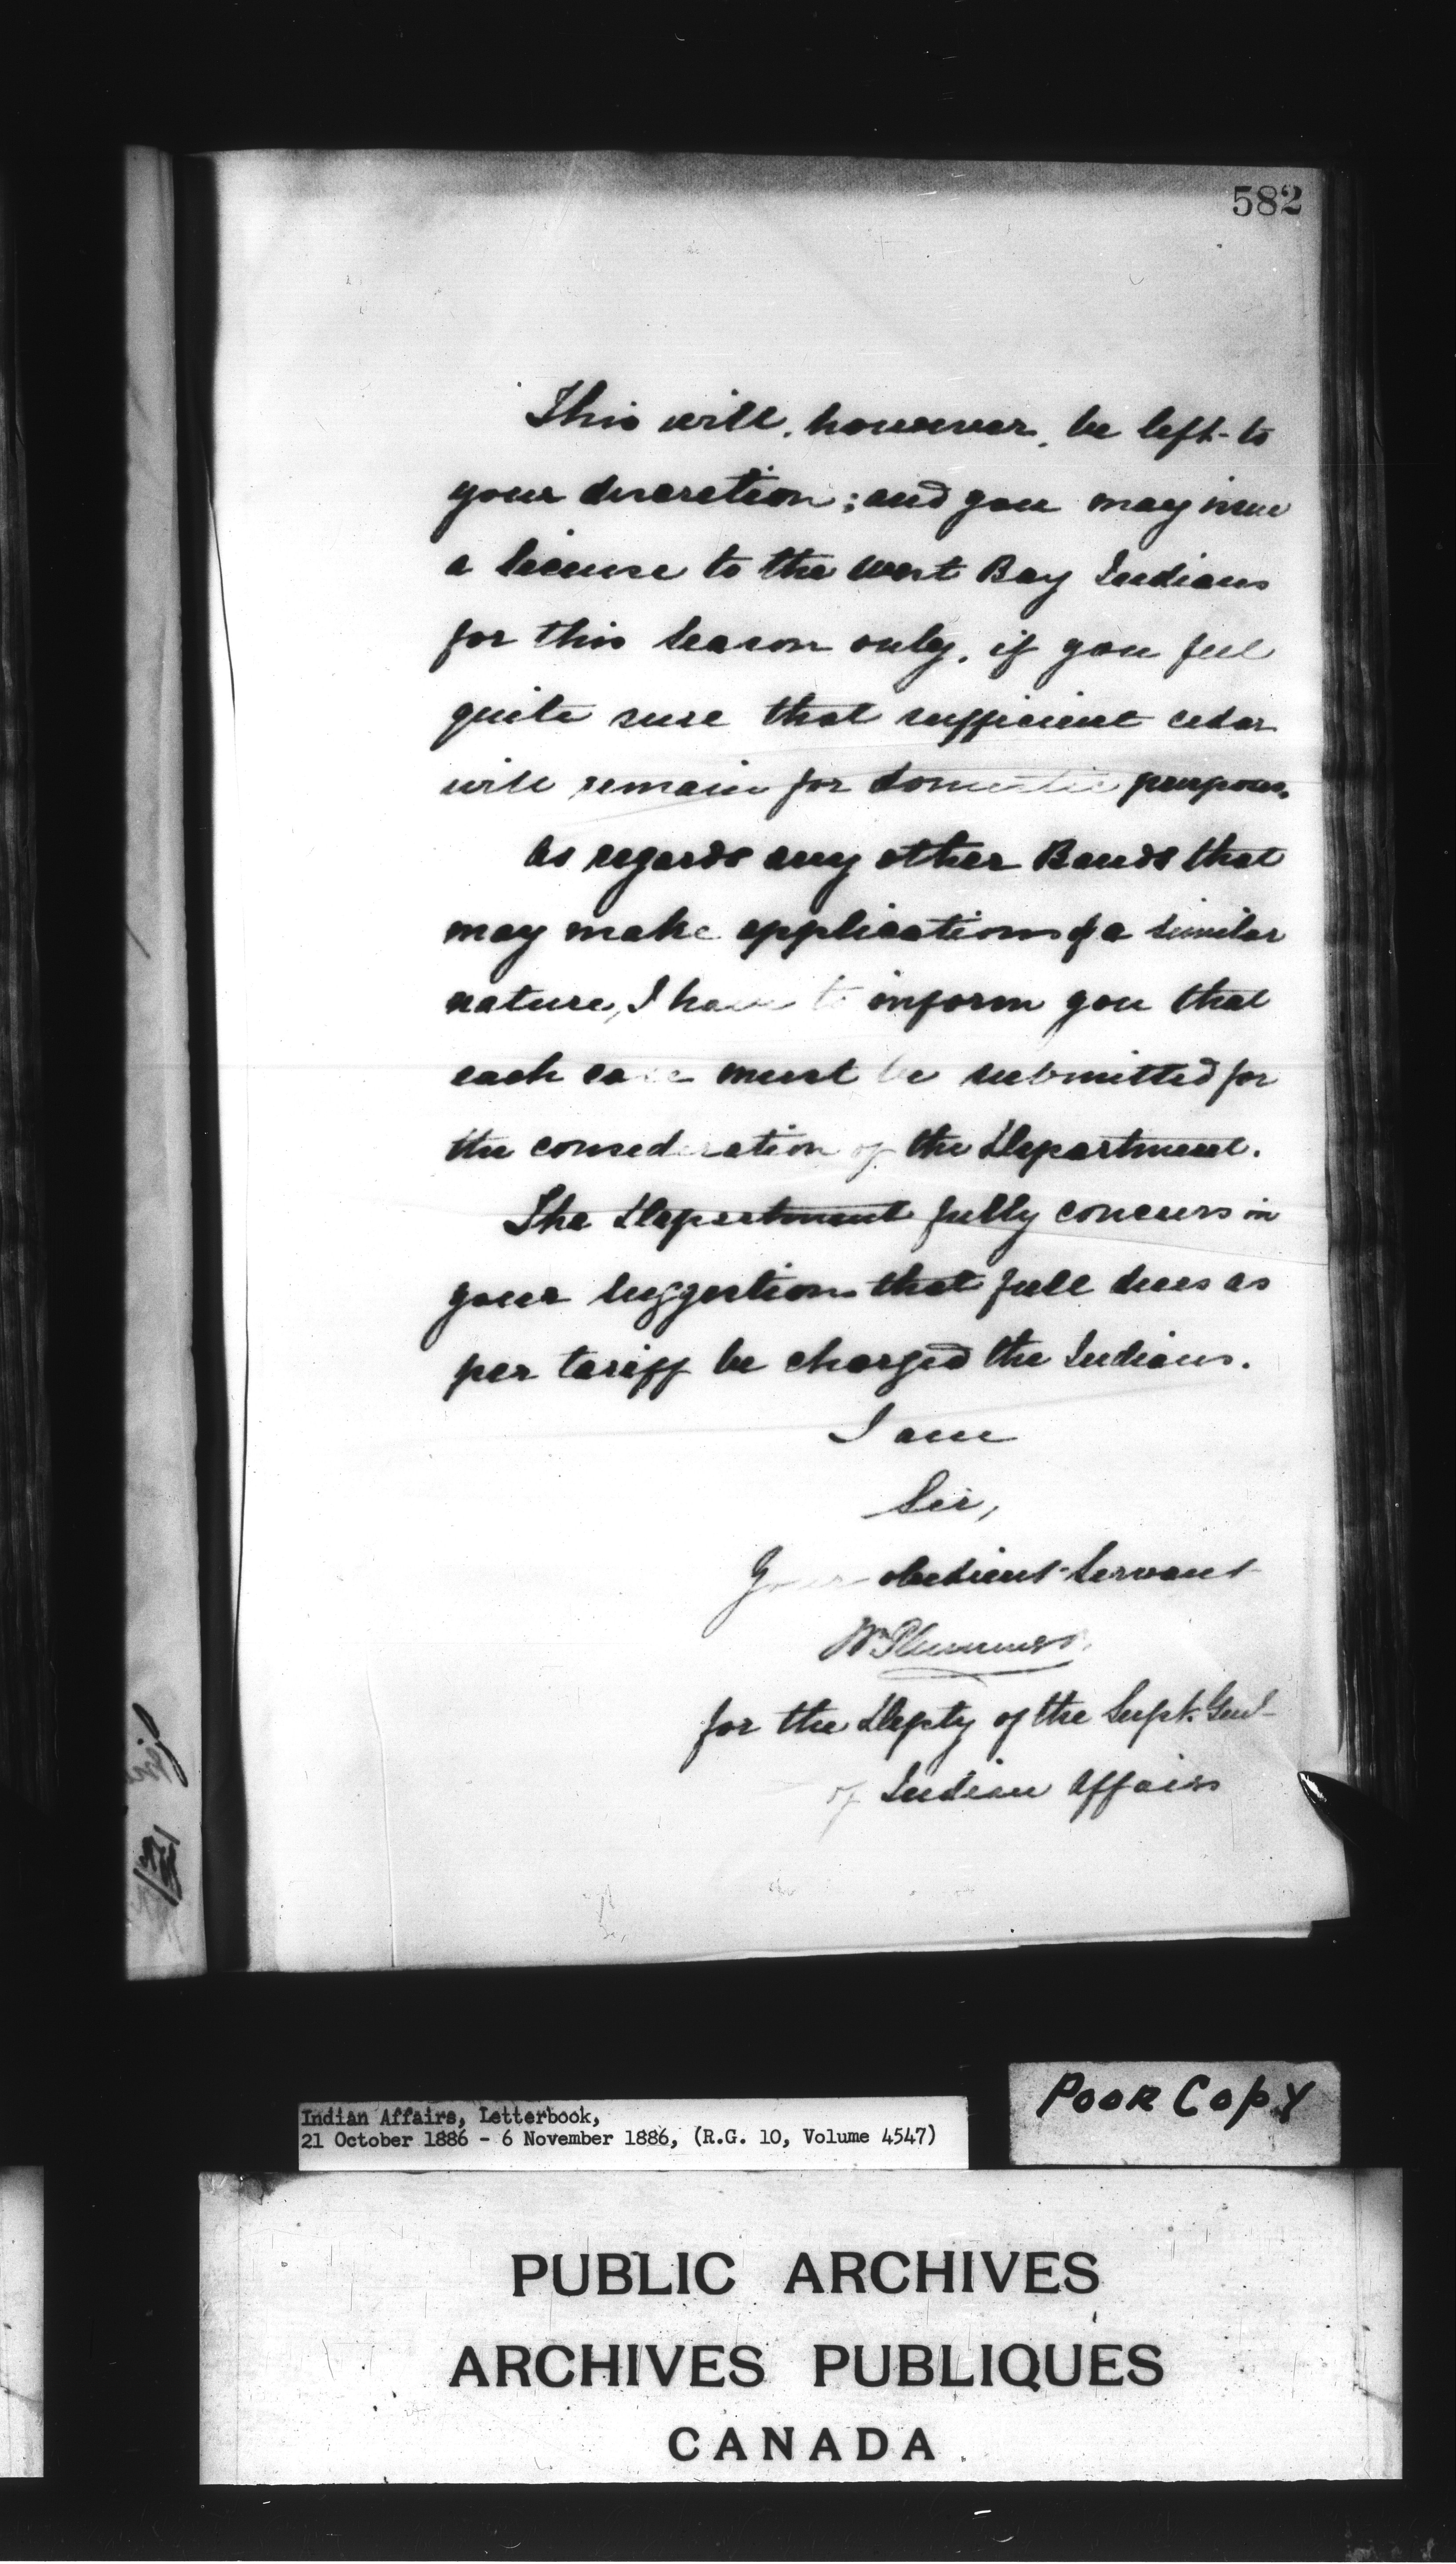 582
This will, however, be left to
your discretion; and you may issue
a license to the West Bay Indians
for this season only, if you feel
quite sure that sufficient cedar
will remain for domestic purposes.
As regards any other Bands that
may make applications of a similar
nature, I have to inform you that
each case must be submitted for
the consideration of the Department.
The Department fully concurs in
your suggestion that full dues as
per tariff be charged the Indians.
I am
Sir,
Your obedient Servant
Wm Plummer
for the Depty of the Supt. Genl
of Indian Affairs
POOR COPY
Indian Affairs, Letterbook,
21 October 1886 - 6 November 1886, (R.G. 10, Volume 4547)
PUBLIC ARCHIVES
ARCHIVES PUBLIQUES
CANADA